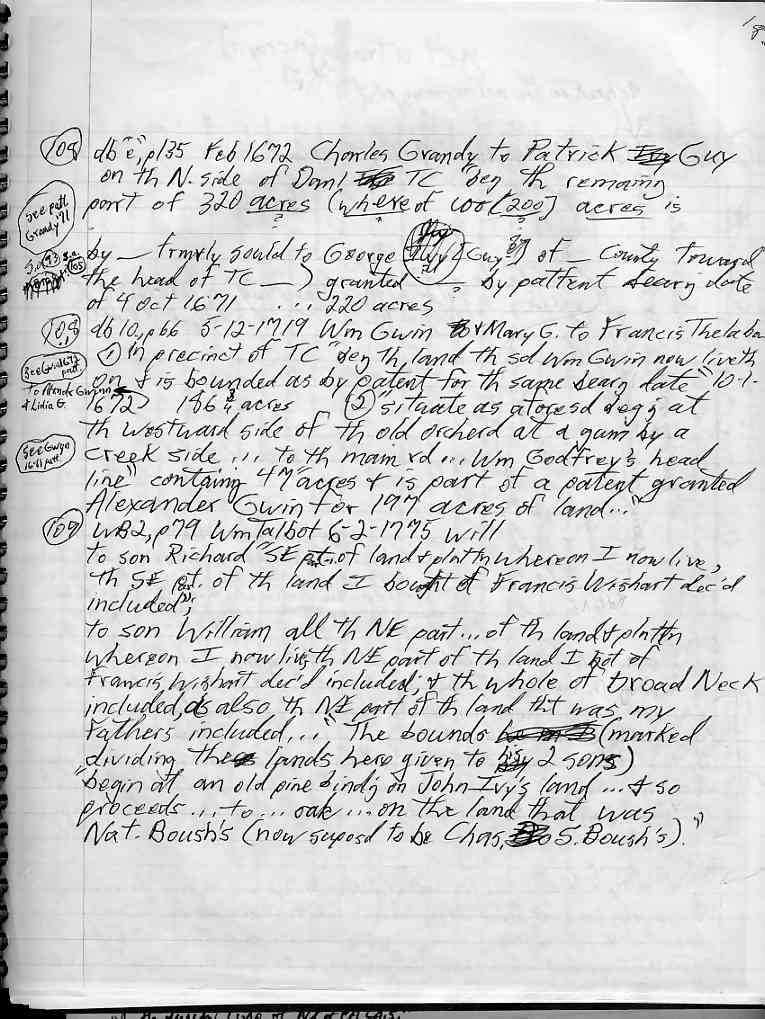 108 db "e", p135 Feb 1672 Charles Grandy to Patrick Guy
on th N. side of Danl TC "beg th remaing
See patt Grandy '71
part of 320 acres (where of 100 [200] acres is
by _ frmrly sould to George Guy [Guy] of _ County toward
the head of TC _) granted _ by pattent bearg date
of 4 Oct 1671 ... 220 acres
108 db 10, p66 5-12-1719 Wm Gwin & Mary G. to Francis Thelaba
① In precinct of TC "beg th land th sd Wm Gwin now liveth
See Gwin 1672 patt.
on & is bounded as by patent for th same bearg date" 10-1-
& Lidia G.
1672 186 ½ acres ② "situate as aforesd begg at
th westward side of th old orcherd at a gum by a
See Gwyn patt.
creek side ... to th main rd ... Wm Godfrey's head
line" containg 47 acres & is part of a patent granted
Alexander Gwin for 197 acres of land..."
109 WB2, p79 Wm Talbot 6-2-1775 will
to son Richard "SE pt. of land & plnttn whereon I now live,
th SE pt. of th land I bought of Francis Wishart dec'd
included";
to son William all th NE part ... of th land & plnttn
whereon I now live, th NE part of th land I bot of
Francis Wishart dec'd included; & th whole of broad Neck
included, as also th NE part of th land tht was my
Fathers included..." The bounds (marked
dividing the lands here given to his 2 sons)
"begin at an old pine bindg on John Ivy's land ... & so
proceeds ... to ... oak ... on the land that was
Nat. Boush's (now suposd to be Chas. S. Boush's)."